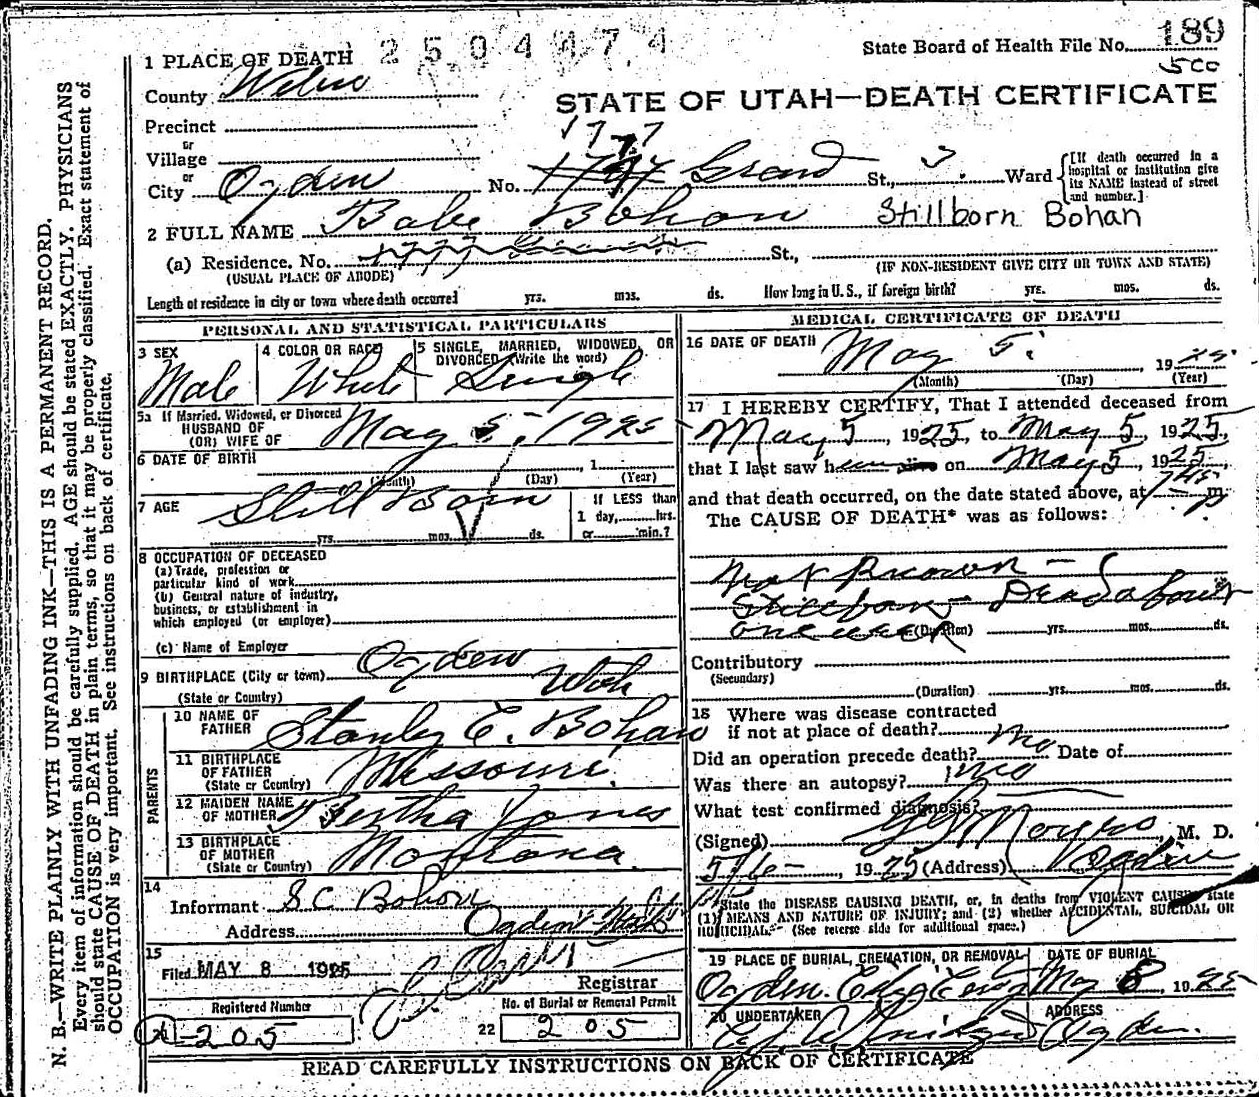 2504474
State Board of Health File No. 189
500
STATE OF UTAH—DEATH CERTIFICATE
1 PLACE OF DEATH
County Weber
Precinct
or
Village
or
City Ogden No. 1777 Grand St., Ward
[If death occurred in a hospital or institution give its NAME instead of street and number.]
2 FULL NAME Babe Bohan Stillborn Bohan
(a) Residence. No. St.,
(USUAL PLACE OF ABODE) (IF NON-RESIDENT GIVE CITY OR TOWN AND STATE)
Length of residence in city or town where death occurred yrs. mos. ds. How long in U.S., if foreign birth? yrs. mos. ds.
PERSONAL AND STATISTICAL PARTICULARS
3 SEX 4 COLOR OR RACE 5 SINGLE, MARRIED, WIDOWED, OR DIVORCED (Write the word)
Male White Single
5a If Married, Widowed, or Divorced
HUSBAND OF
(OR) WIFE OF May 5, 1925
6 DATE OF BIRTH , 1
(Month) (Day) (Year)
7 AGE Still Born If LESS than
1 day, hrs.
yrs. mos. ds. or min.?
8 OCCUPATION OF DECEASED
(a) Trade, profession or
particular kind of work
(b) General nature of industry,
business, or establishment in
which employed (or employer)
(c) Name of Employer
9 BIRTHPLACE (City or town) Ogden
(State or Country) Utah
PARENTS
10 NAME OF FATHER Stanley E. Bohan
11 BIRTHPLACE OF FATHER (State or Country) Missouri.
12 MAIDEN NAME OF MOTHER Bertha Jones
13 BIRTHPLACE OF MOTHER (State or Country) Montana
14
Informant S C Bohan
Address Ogden Utah
15
Filed MAY 8 1925
Registrar
Registered Number
205
No. of Burial or Removal Permit
22 205
MEDICAL CERTIFICATE OF DEATH
16 DATE OF DEATH May 5, 1925
(Month) (Day) (Year)
17 I HEREBY CERTIFY, That I attended deceased from
May 5, 1925, to May 5, 1925,
that I last saw h on May 5, 1925,
and that death occurred, on the date stated above, at 745 P m.
The CAUSE OF DEATH* was as follows:
Not Known —
Stillborn — Dead about
one week
(Duration) yrs. mos. ds.
Contributory
(Secondary)
(Duration) yrs. mos. ds.
18 Where was disease contracted
if not at place of death?
Did an operation precede death? no Date of
Was there an autopsy? no
What test confirmed diagnosis?
(Signed) , M. D.
5/6 , 1925 (Address) Ogden
*State the DISEASE CAUSING DEATH, or, in deaths from VIOLENT CAUSES state
(1) MEANS AND NATURE OF INJURY; and (2) whether ACCIDENTAL, SUICIDAL OR
HOMICIDAL. (See reverse side for additional space.)
19 PLACE OF BURIAL, CREMATION, OR REMOVAL DATE OF BURIAL
Ogden. City May 8, 1925
20 UNDERTAKER ADDRESS
Ogden.
READ CAREFULLY INSTRUCTIONS ON BACK OF CERTIFICATE
N. B.—WRITE PLAINLY WITH UNFADING INK—THIS IS A PERMANENT RECORD.
Every item of information should be carefully supplied. AGE should be stated EXACTLY. PHYSICIANS
should state CAUSE OF DEATH in plain terms, so that it may be properly classified. Exact statement of
OCCUPATION is very important. See instructions on back of certificate.